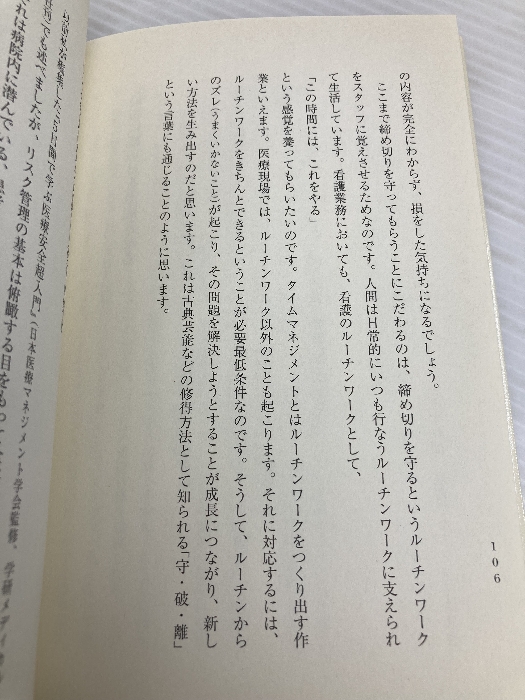 の内容が完全にわからず、損をした気持ちになるでしょう。
ここまで締め切りを守ってもらうことにこだわるのは、締め切りを守るというルーチンワーク
をスタッフに覚えさせるためなのです。人間は日常的にいつも行なうルーチンワークに支えられ
て生活しています。看護業務においても、看護のルーチンワークとして、
「この時間には、これをやる」
という感覚を養ってもらいたいのです。タイムマネジメントとはルーチンワークをつくり出す作
業といえます。医療現場では、ルーチンワーク以外のことも起こります。それに対応するには、
ルーチンワークをきちんとできるということが必要最低条件なのです。そうして、ルーチンから
のズレ(うまくいかないこと)が起こり、その問題を解決しようとすることが成長につながり、新し
い方法を生み出すのだと思います。これは古典芸能などの修得方法として知られる「守・破・離」
という言葉にも通じることのように思います。
106
で学ぶ医療安全超入門』(日本医療マネジメント学会監修、学研メディカル
でも述べましたが、リスク管理の基本は俯瞰する目をもって
れは病院内に潜んでいる